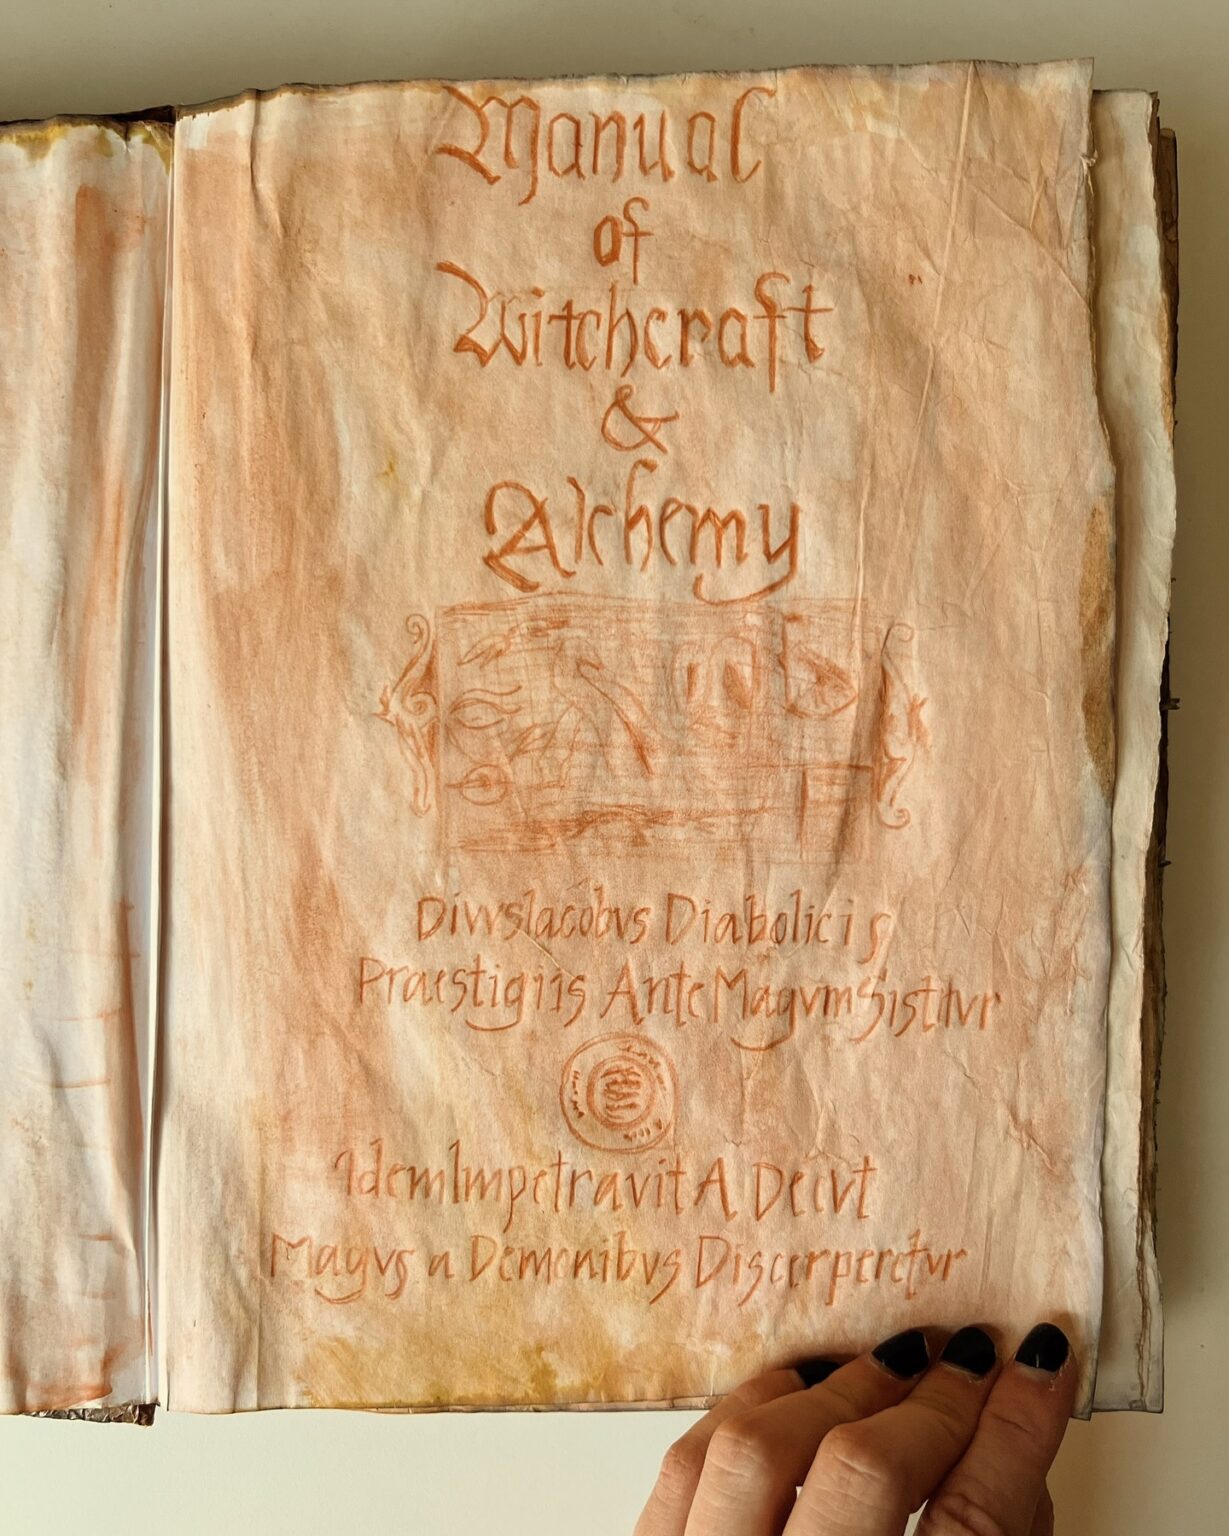 Manual
of
Witchcraft
&
Alchemy
DivvsIacobvs Diabolicis
Praestigiis Ante MagvmSistitvr
IdemImpetravit A Deevt
Magvs a Demonibvs Discerperetvr